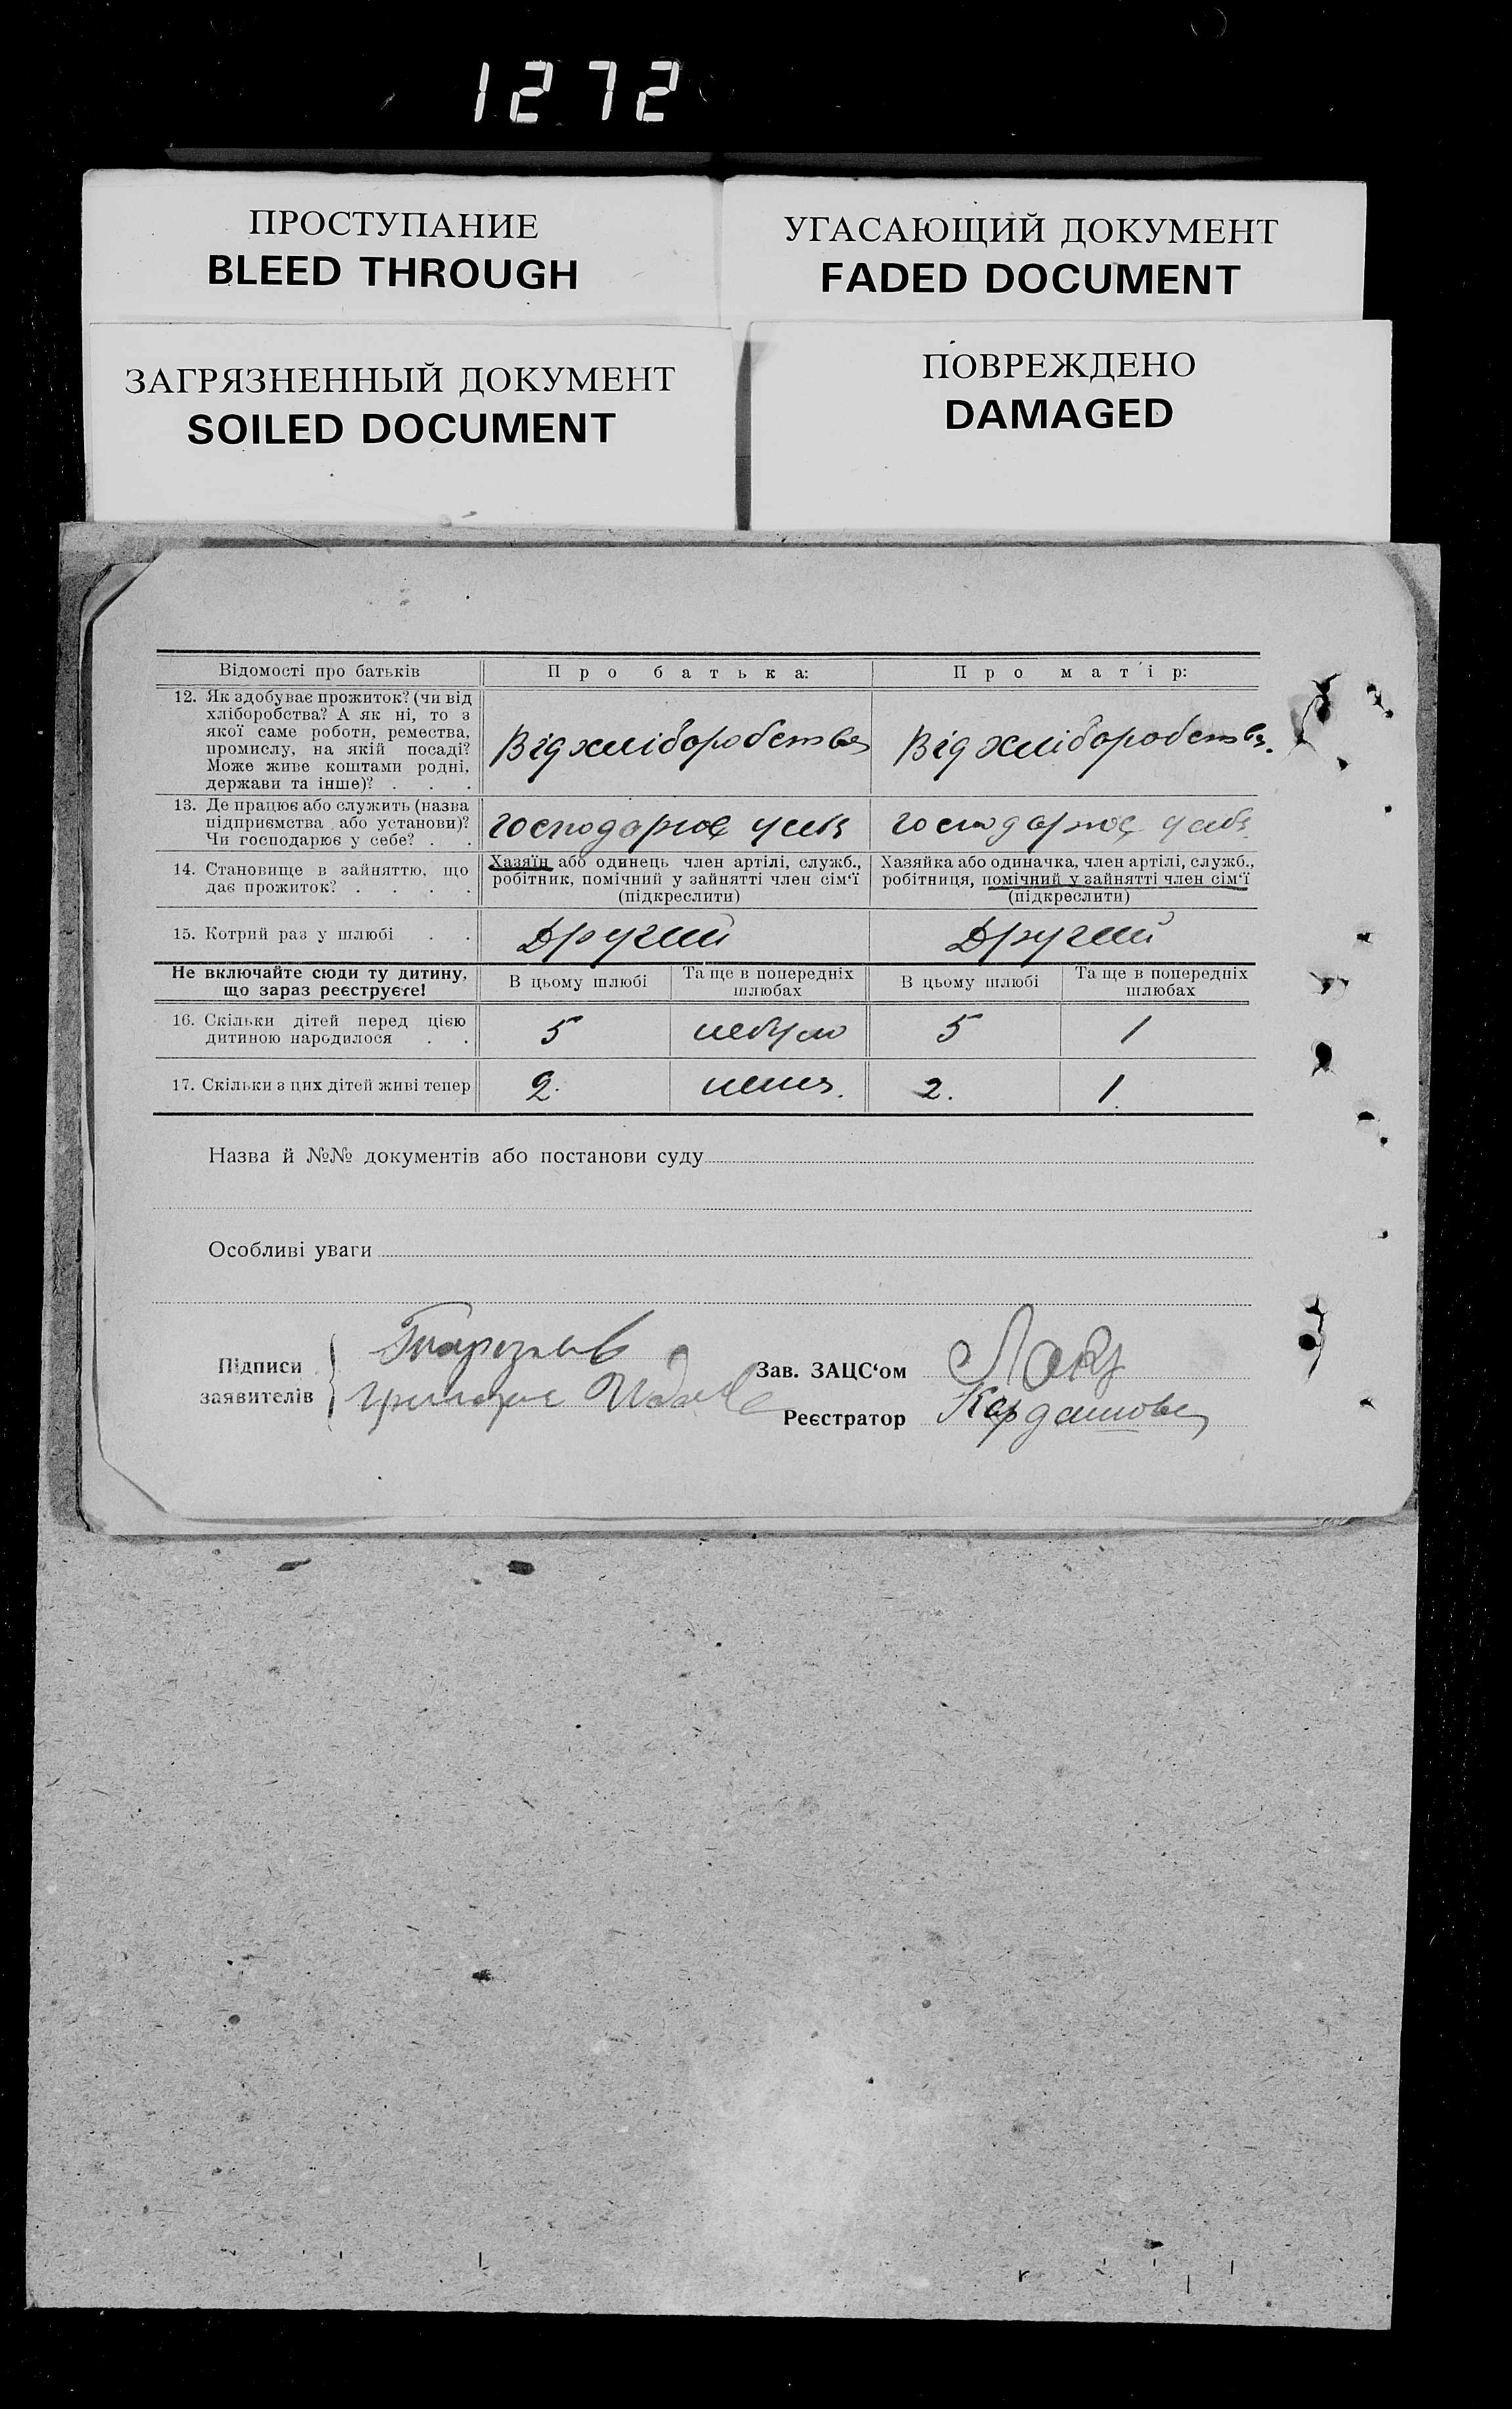 1272
ПРОСТУПАНИЕ
BLEED THROUGH
УГАСАЮЩИЙ ДОКУМЕНТ
FADED DOCUMENT
ЗАГРЯЗНЕННЫЙ ДОКУМЕНТ
SOILED DOCUMENT
ПОВРЕЖДЕНО
DAMAGED
Відомості про батьків
Про батька:
Про матір:
12. Як здобуває прожиток? (чи від
хліборобства? А як ні, то з
якої саме роботи, ремества,
промислу, на якій посаді?
Може живе коштами родні,
держави та інше)? . . .
Від хліборобства
Від хліборобства.
13. Де працює або служить (назва
підприємства або установи)?
Чи господарює у себе? . .
господарює у себе
господарює у себе
14. Становище в зайняттю, що
дає прожиток? . . . .
Хазяїн або одинець член артілі, служб.,
робітник, помічний у зайнятті член сім‘ї
(підкреслити)
Хазяйка або одиначка, член артілі, служб.,
робітниця, помічний у зайнятті член сім‘ї
(підкреслити)
15. Котрий раз у шлюбі . .
Другий
Другий
Не включайте сюди ту дитину,
що зараз реєструєте!
В цьому шлюбі
Та ще в попередніх
шлюбах
В цьому шлюбі
Та ще в попередніх
шлюбах
16. Скільки дітей перед цією
дитиною народилося . .
5
небуло
5
1
17. Скільки з цих дітей живі тепер
2.
нема.
2.
1.
Назва й №№ документів або постанови суду
Особливі уваги
Підписи
заявителів
Зав. ЗАЦС‘ом
Реєстратор